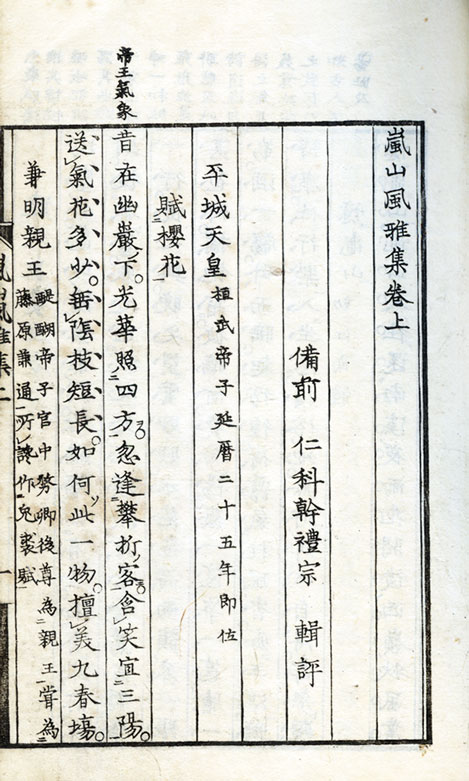 嵐山風雅集卷上
備前 仁科幹禮宗 輯評
平城天皇 桓武帝子延曆二十五年即位
賦櫻花
帝王氣象
昔在幽巖下。光華照四方。忽逢攀折客。含笑宜三陽。
送氣花多少。垂陰枝短長。如何此一物。擅美九春場。
兼明親王 醍醐帝子官中務卿後尊為親王嘗為
藤原兼通所讒作兔裘賦